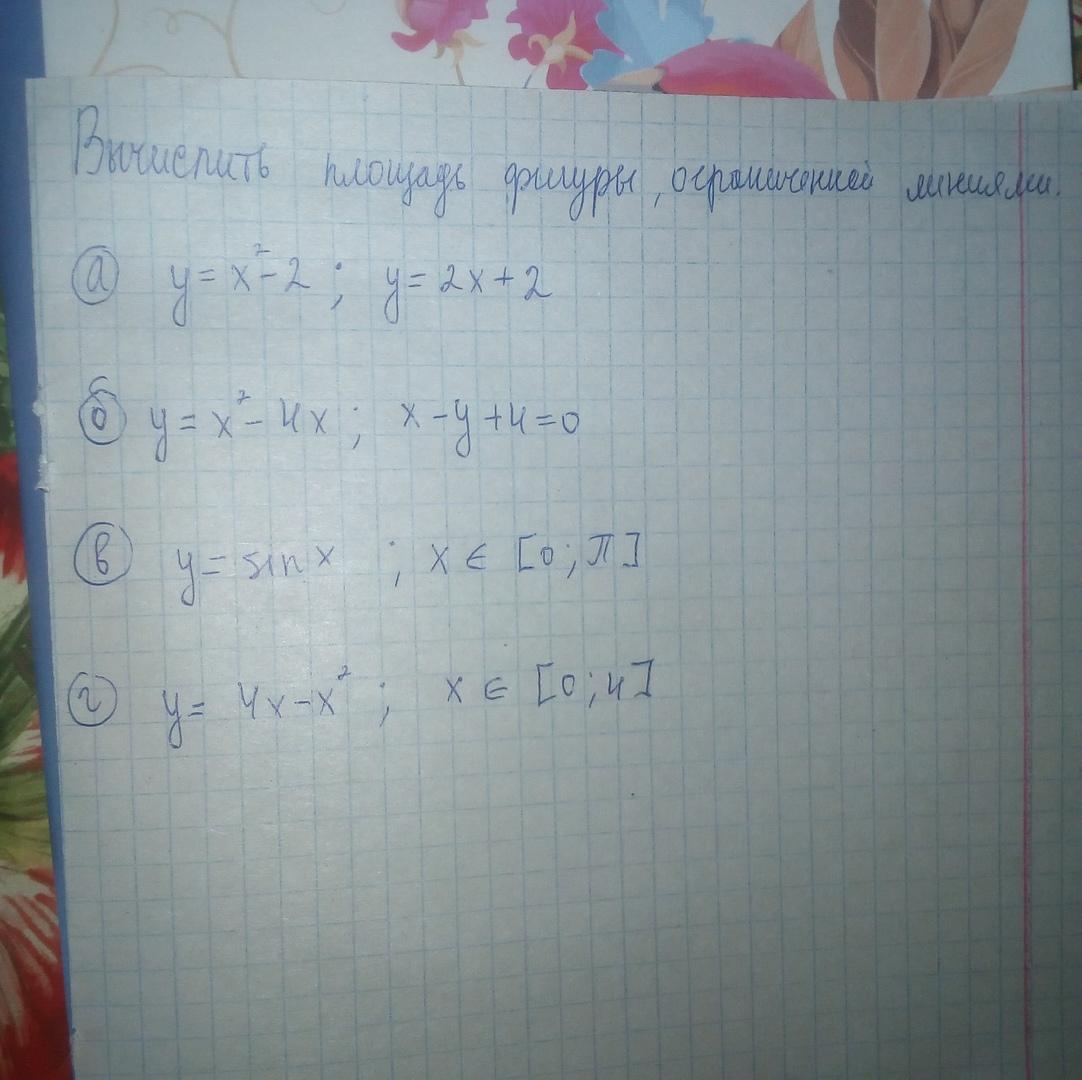 Вычислить площадь фигуры, ограниченной линиями.
а) y = x² - 2 ; y = 2x + 2
б) y = x² - 4x ; x - y + 4 = 0
в) y = sin x ; x ∈ [0; π]
г) y = 4x - x² ; x ∈ [0; 4]